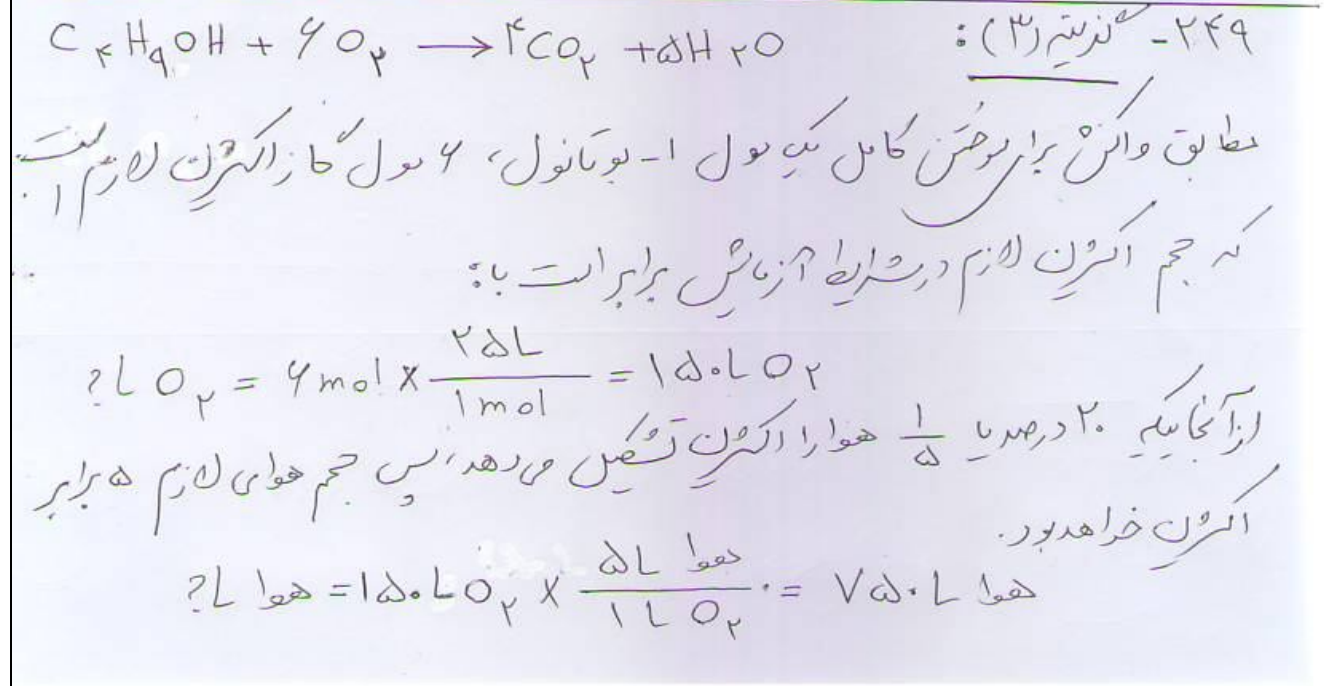 ۲۴۹- گزینه (۳):
C۴H۹OH + ۶O۲ → ۴CO۲ + ۵H۲O
مطابق واکنش برای سوختن کامل یک مول ۱- بوتانول، ۶ مول گاز اکسیژن لازم است.
که حجم اکسیژن لازم در شرایط آزمایش برابر است با:
?L O۲ = ۶mol × ۲۵L / ۱mol = ۱۵۰L O۲
از آنجاییکه ۲۰ درصد یا ۱/۵ هوا را اکسیژن تشکیل می‌دهد، پس حجم هوای لازم ۵ برابر
اکسیژن خواهد بود.
?L هوا = ۱۵۰L O۲ × ۵L هوا / ۱L O۲ = ۷۵۰L هوا